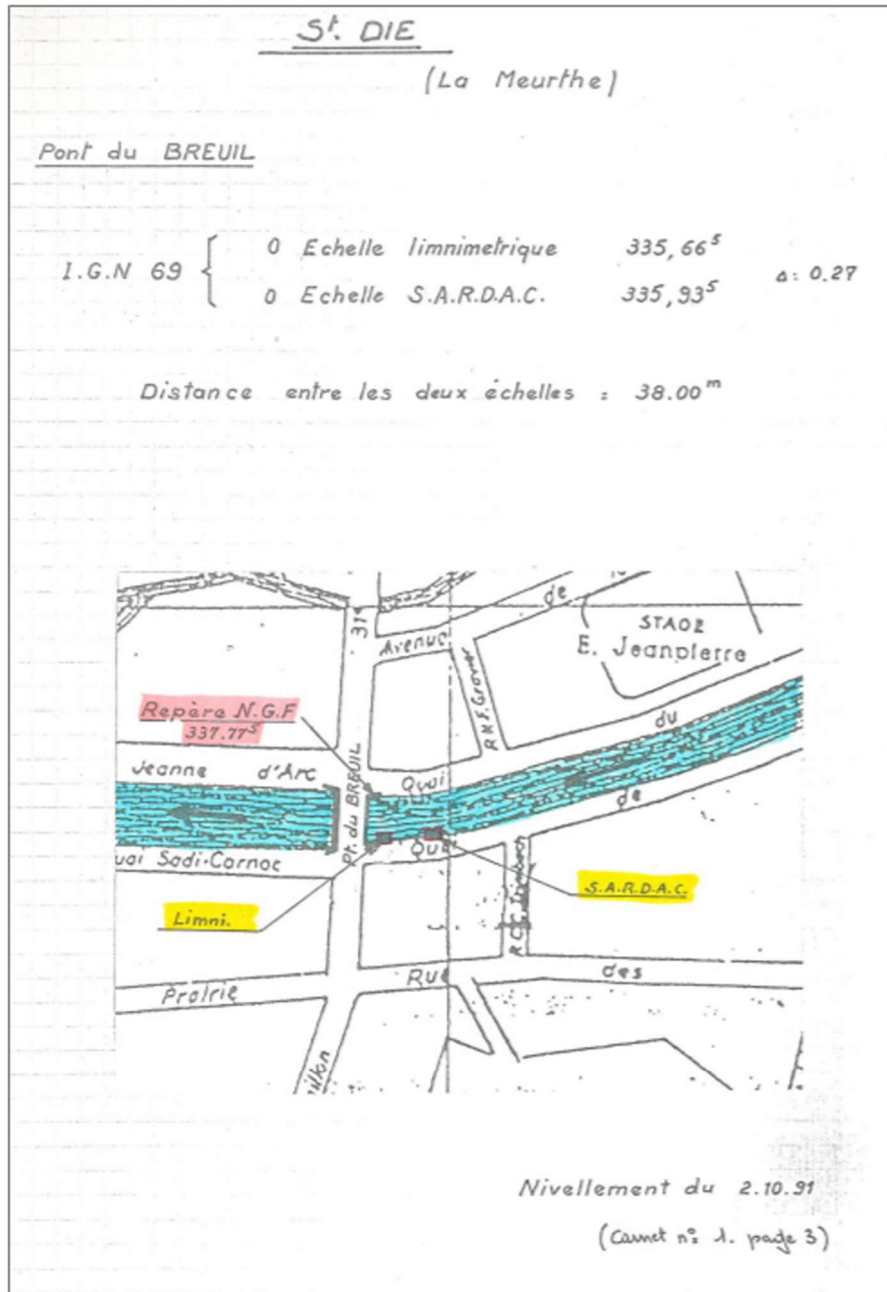 St. DIE
(La Meurthe)
Pont du BREUIL
I.G.N 69 { 0 Echelle limnimetrique 335,66⁵
0 Echelle S.A.R.D.A.C. 335,93⁵
Δ: 0.27
Distance entre les deux échelles : 38.00ᵐ
31
Avenue
de
STADE
E. Jeanpierre
Repère N.G.F
337.77⁵
Jeanne d'Arc
Pt. du BREUIL
Quai
du
de
uai Sadi-Carnot
Limni.
S.A.R.D.A.C.
Prairie
Rue
des
Nivellement du 2.10.91
(Carnet n° 1. page 3)